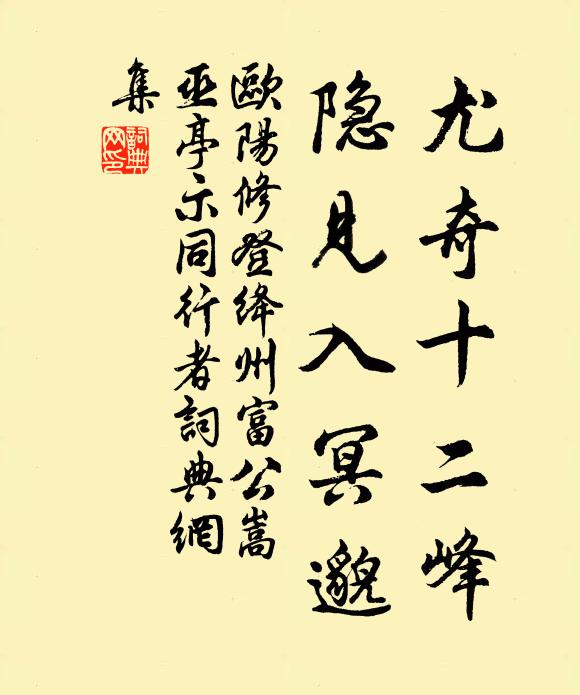 尤奇十二峰
隐見入冥邈
歐陽修登绛州富公嵩
巫亭示同行者詞典網
集
詞典
网印